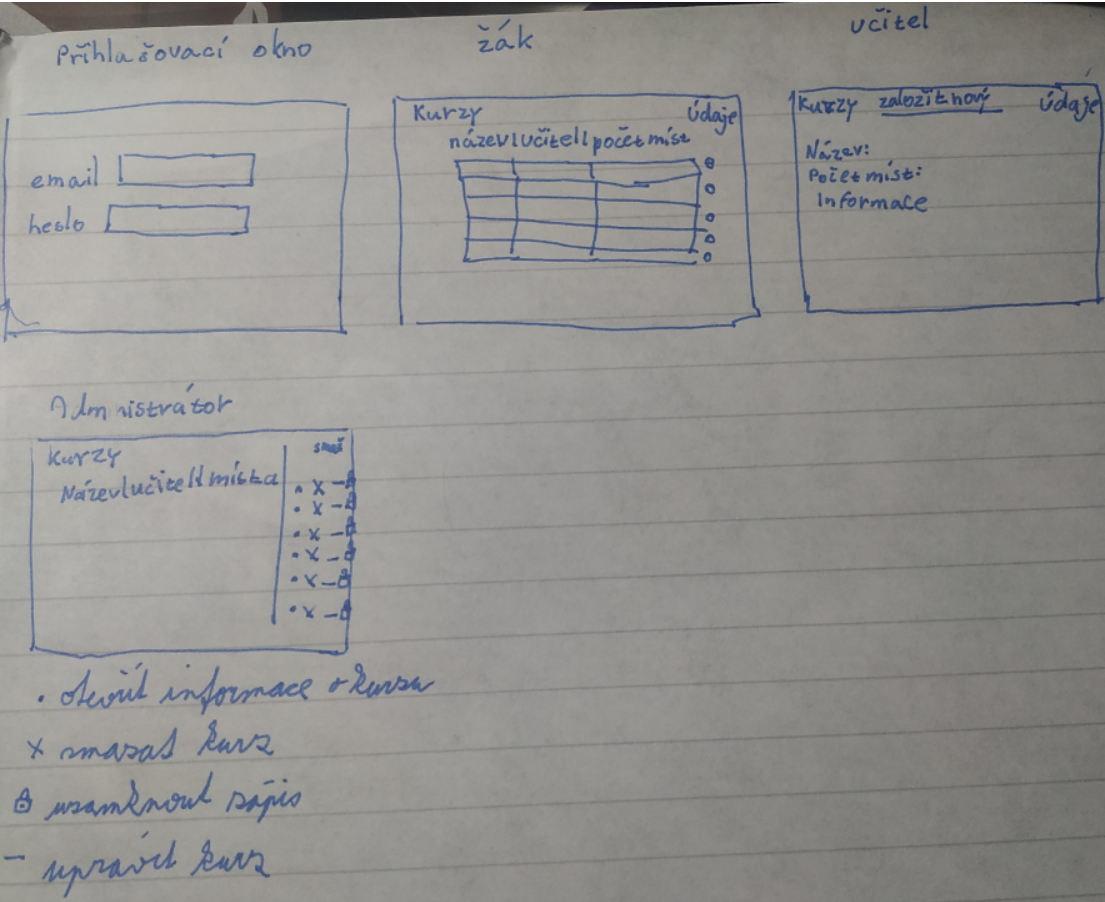 Přihlašovací okno
žák
učitel
email
heslo
Kurzy údaje
název | učitel | počet míst
Kurzy založit nový údaje
Název:
Počet míst:
Informace
Administrátor
Kurzy
Název | učitel | místa
• x –
• x –
• x –
• x –
• x –
• x –
• otevřít informace o kurzu
x smazat kurz
uzamknout zápis
– upravit kurz